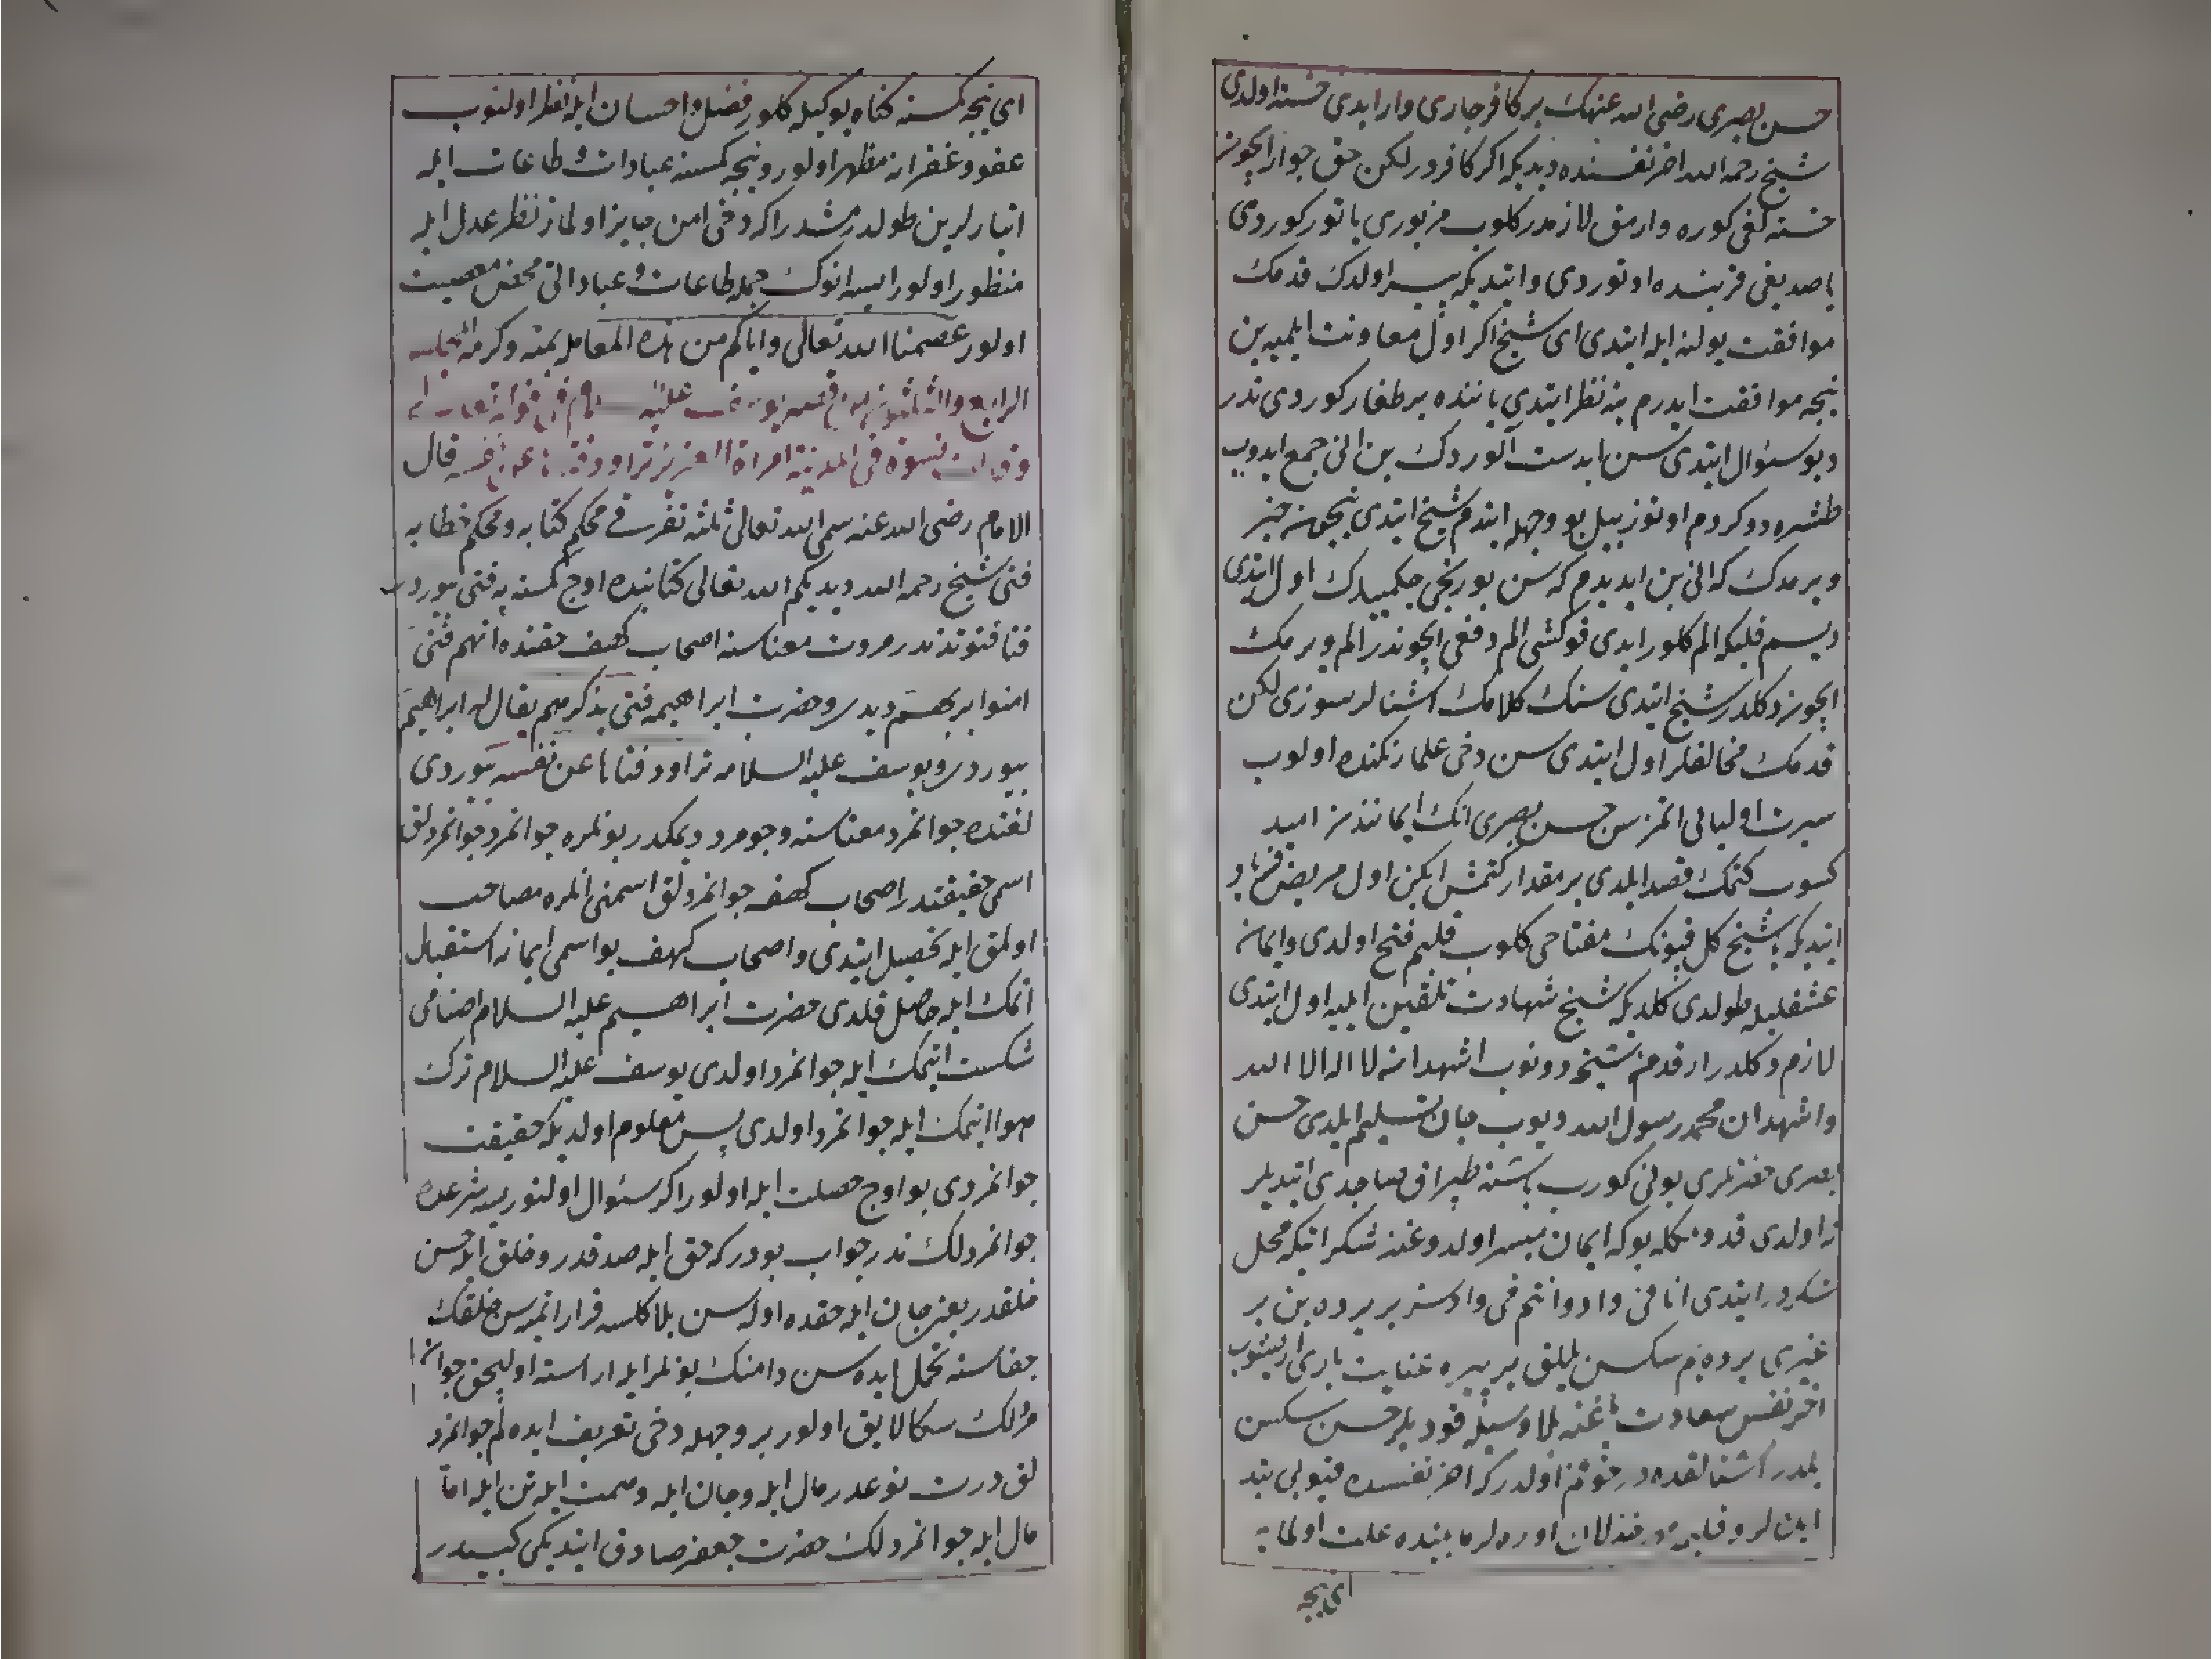 حسن بصری رضی الله عنهك بر كافر جاری وار ایدی خسته اولدی
شیخ رحمه الله اخر نفسنده دیدیكه اكر كافردر لكن حق جوار ایچون
خسته لغی كوره وارمق لازمدر كلوب مزبوری یاتور كوردی
یاصدیغی قربنده اوتوردی وایتدیكه پیر اولدك قدمك
موافقت بولنه ایله ایتدی ای شیخ اكر اول معاونت ایلمیه بن
نیجه موافقت ایدرم ینه نظر ایتدی یاننده بر طغار كوردی ندر
دیو سئوال ایتدی سن ابدست الوردك بن انی جمع ایدوب
طشره دوكردم اوتوز ییل بو وجهله ایتدم شیخ ایتدی نیچون خبر
ویرمدك كه انی بن ایدیدم كه سن بو رنجی چكمیدك اول ایتدی
دیسم قلبكه الم كلور ایدی قوكشی الم دفعی ایچوندر الم ویرمك
ایچون دكلدر شیخ ایتدی سنك كلامك اشنالر سوزی لكن
قدمك مخالفلر اول ایتدی سن دخی علما زنكنده اولوب
سیرت اولیایی اتمزسن حسن بصری انك ایمانندن امید
كسوب كتمك قصد ایلدی بر مقدار كتمش ایكن اول مریض فریاد
ایتدیكه یا شیخ كل قپونك مفتاحی كلوب قلبم فتح اولدی وایمان
عشقیله طولدی كلدیكه شیخ شهادت تلقین ایلیه اول ایتدی
لازم دكلدر ارقدمن شیخ دونوب اشهد ان لا اله الا الله
واشهد ان محمد رسول الله دیوب جان تسلیم ایلدی حسن
بصری حضرتلری بونی كورب باشنه طپراق صاچدی ایتدیلر
نه اولدی قدومكله بوكه ایمان میسر اولدوغنه شكر اتیكه محل
شكردر ایتدی انا فی واد وانتم فی واد سز بر یرده بن بر
غیری یرده یم سكسن ییللق بر پیره عنایت باری اریشوب
اخر نفس سعادت باغنه بلا وسیله قودیلر حسن سكسن
ییلدر اشنالقده در خوفم اولدر كه اخر نفسده قپولی بند
ایدن لر وقایه خذلان اوره لر ما بینده علت اولمایه
ای نیجه
ای نیجه كمسنه كناه یوكیله كلور فضل واحسان ایله نظر اولنوب
عفو وغفرانه مظهر اولور ونیجه كمسنه عبادات وطاعات ایله
انبارلرین طولدرمشدر اكه دخی امن جایز اولماز نظر عدل ایله
منظور اولور ایسه انوك جمله طاعات وعباداتی محض معصیت
اولور عصمنا الله تعالی وایاكم من هذه المعامله بمنه وكرمه المجلس
الرابع والثلثون من قصه یوسف علیه السلام فی قوله تعالی
وقالت نسوة فی المدینة امرأة العزیز تراود فتاها عن نفسه قال
الامام رضی الله عنه سمی الله تعالی ثلثه نفر فی محكم كتابه ومحكم خطابه
فتی شیخ رحمه الله دیدیكم الله تعالی كتابنده اوچ كمسنه یه فتی بیوردی
فتا فتوتدندر مروت معناسنه اصحاب كهف حقنده انهم فتیة
امنوا بربهم دیدی وحضرت ابراهیمه فتی یذكرهم یقال له ابراهیم
بیوردی ویوسف علیه السلامه تراود فتاها عن نفسه بیوردی
لغتده جوانمرد معناسنه وجومرد دیمكدر بونلره جوانمرد جوانمردلق
اسمی حقیقتدر اصحاب كهف جوانمردلق اسمنی انلره مصاحب
اولمق ایله تحصیل ایتدی واصحاب كهف بو اسمی ایمانه استقبال
اتمك ایله حاصل قلدی حضرت ابراهیم علیه السلام اصنامی
شكست ایتمك ایله جوانمرد اولدی یوسف علیه السلام ترك
هوا ایتمك ایله جوانمرد اولدی پس معلوم اولدیكه حقیقت
جوانمردی بو اوچ خصلت ایله اولور اكر سئوال اولنورسه شرعده
جوانمردلك ندر جواب بودر كه حق ایله صدقدر وخلق ایله حسن
خلقدر یعنی جان ایله حقده اوله سن بلا كلسه فرار اتمیه سن خلقك
جفاسنه تحمل ایده سن دامنك بونلر ایله اراسته اولیجق جوان
مردلك سكا لایق اولور بر وجهله دخی تعریف ایده لم جوانمرد
لق درت نوعدر مال ایله وجان ایله وهمت ایله تن ایله اما
مال ایله جوانمردلك حضرت جعفر صادق ایتدیكی كبیدر